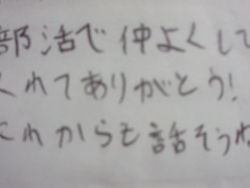 部活で仲よくして
くれてありがとう!
これからも話そうね